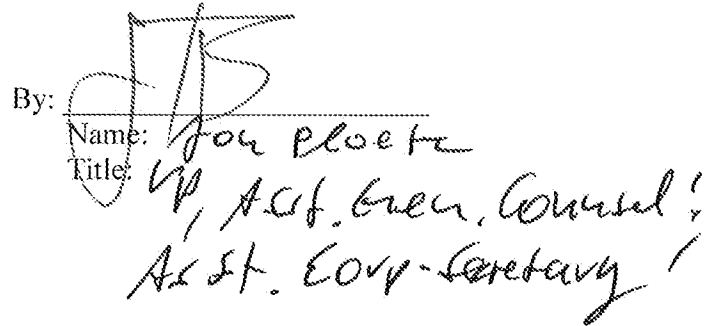 By:
Name: Jon Ploetz
Title: VP, Asst. Gen. Counsel;
Asst. Corp. Secretary